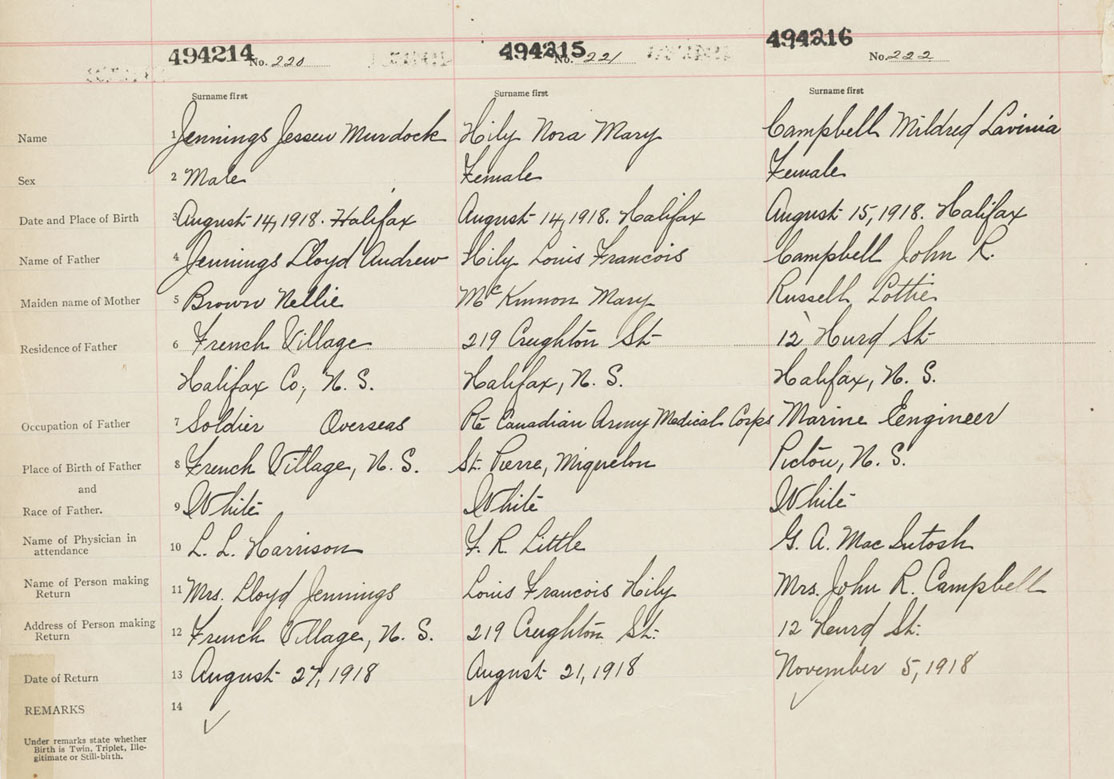 494214 No. 220 494215 No. 221 494216 No. 222
Surname first Surname first Surname first
Name 1 Jennings Jessen Murdock Hily Nora Mary Campbell Mildred Lavinia
Sex 2 Male Female Female
Date and Place of Birth 3 August 14, 1918. Halifax August 14, 1918. Halifax August 15, 1918. Halifax
Name of Father 4 Jennings Lloyd Andrew Hily Louis Francois Campbell John R.
Maiden name of Mother 5 Brown Nellie McKinnon Mary Russell Lottie
Residence of Father 6 French Village 219 Creighton St. 12 Hurd St
Halifax Co., N. S. Halifax, N. S. Halifax, N. S.
Occupation of Father 7 Soldier Overseas Pte Canadian Army Medical Corps Marine Engineer
Place of Birth of Father 8 French Village, N. S. St. Pierre, Miquelon Pictou, N. S.
and
Race of Father. 9 White White White
Name of Physician in
attendance 10 L. L. Harrison F. R. Little G. A. MacIntosh
Name of Person making
Return 11 Mrs. Lloyd Jennings Louis Francois Hily Mrs. John R. Campbell
Address of Person making
Return 12 French Village, N. S. 219 Creighton St. 12 Hurd St.
Date of Return 13 August 27, 1918 August 21, 1918 November 5, 1918
REMARKS 14
Under remarks state whether
Birth is Twin, Triplet, Ille-
gitimate or Still-birth.